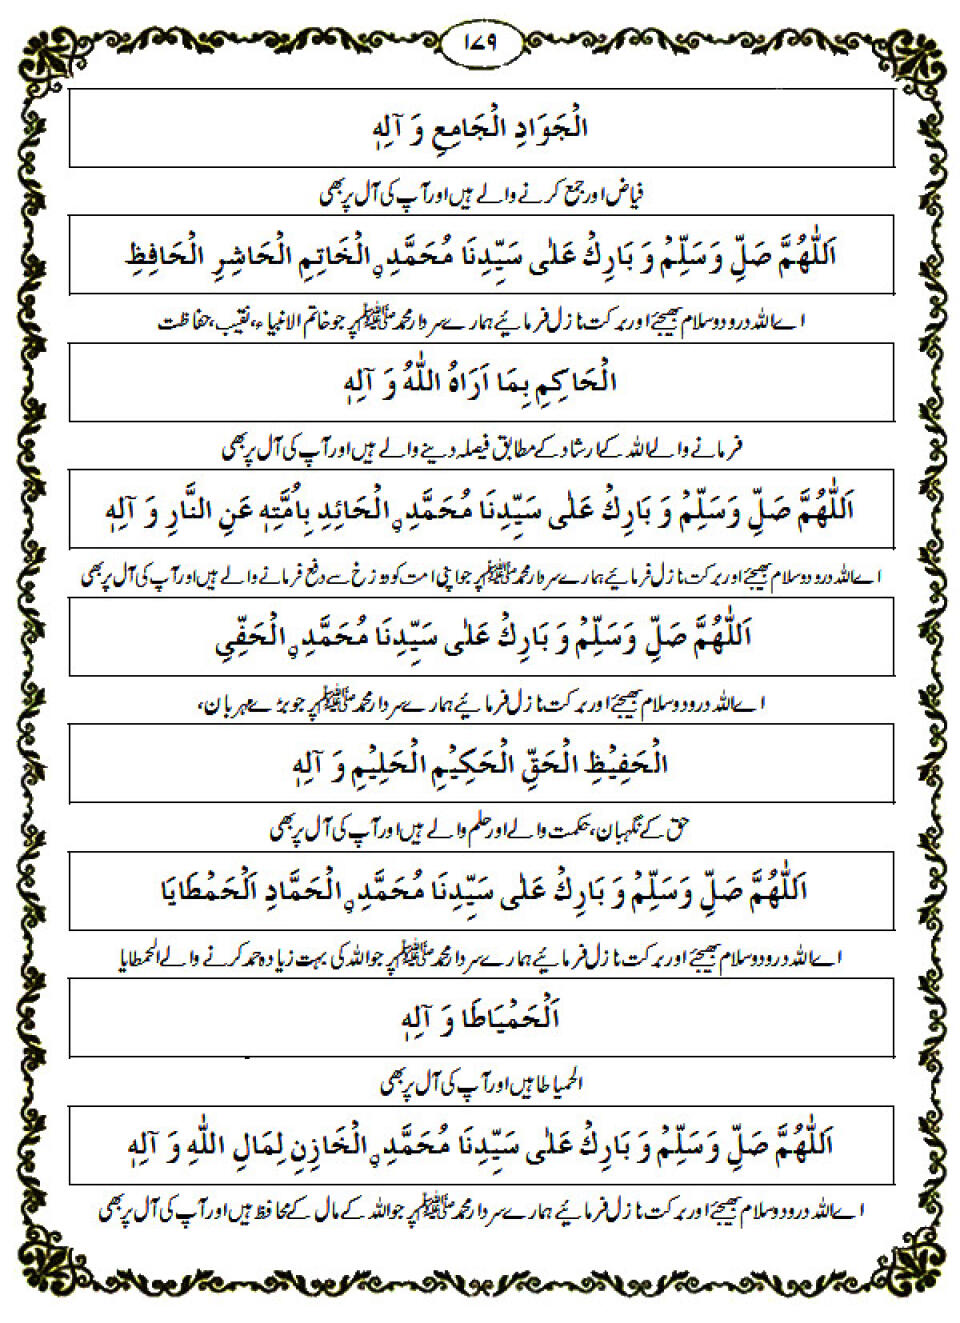 ۱۷۹
الْجَوَادِ الْجَامِعِ وَ آلِهٖ
فیاض اور جمع کرنے والے ہیں اور آپ کی آل پر بھی
اَللّٰهُمَّ صَلِّ وَسَلِّمْ وَ بَارِكْ عَلٰى سَيِّدِنَا مُحَمَّدِ ۣ الْخَاتِمِ الْحَاشِرِ الْحَافِظِ
اے اللہ درود و سلام بھیجئے اور برکت نازل فرمائیے ہمارے سردار محمد ﷺ پر جو خاتم الانبیاء، نقیب، حفاظت
الْحَاكِمِ بِمَا اَرَاهُ اللّٰهُ وَ آلِهٖ
فرمانے والے اللہ کے ارشاد کے مطابق فیصلہ دینے والے ہیں اور آپ کی آل پر بھی
اَللّٰهُمَّ صَلِّ وَسَلِّمْ وَ بَارِكْ عَلٰى سَيِّدِنَا مُحَمَّدِ ۣ الْحَائِدِ بِاُمَّتِهٖ عَنِ النَّارِ وَ آلِهٖ
اے اللہ درود و سلام بھیجئے اور برکت نازل فرمائیے ہمارے سردار محمد ﷺ پر جو اپنی امت کو دوزخ سے دفع فرمانے والے ہیں اور آپ کی آل پر بھی
اَللّٰهُمَّ صَلِّ وَسَلِّمْ وَ بَارِكْ عَلٰى سَيِّدِنَا مُحَمَّدِ ۣ الْحَفِّيِ
اے اللہ درود و سلام بھیجئے اور برکت نازل فرمائیے ہمارے سردار محمد ﷺ پر جو بڑے مہربان،
الْحَفِيْظِ الْحَقِّ الْحَكِيْمِ الْحَلِيْمِ وَ آلِهٖ
حق کے نگہبان، حکمت والے اور حلم والے ہیں اور آپ کی آل پر بھی
اَللّٰهُمَّ صَلِّ وَسَلِّمْ وَ بَارِكْ عَلٰى سَيِّدِنَا مُحَمَّدِ ۣ الْحَمَّادِ اَلْحَمْطَايَا
اے اللہ درود و سلام بھیجئے اور برکت نازل فرمائیے ہمارے سردار محمد ﷺ پر جو اللہ کی بہت زیادہ حمد کرنے والے الحمطایا
اَلْحَمْيَاطَا وَ آلِهٖ
الحمیاطا ہیں اور آپ کی آل پر بھی
اَللّٰهُمَّ صَلِّ وَسَلِّمْ وَ بَارِكْ عَلٰى سَيِّدِنَا مُحَمَّدِ ۣ الْخَازِنِ لِمَالِ اللّٰهِ وَ آلِهٖ
اے اللہ درود و سلام بھیجئے اور برکت نازل فرمائیے ہمارے سردار محمد ﷺ پر جو اللہ کے مال کے محافظ ہیں اور آپ کی آل پر بھی